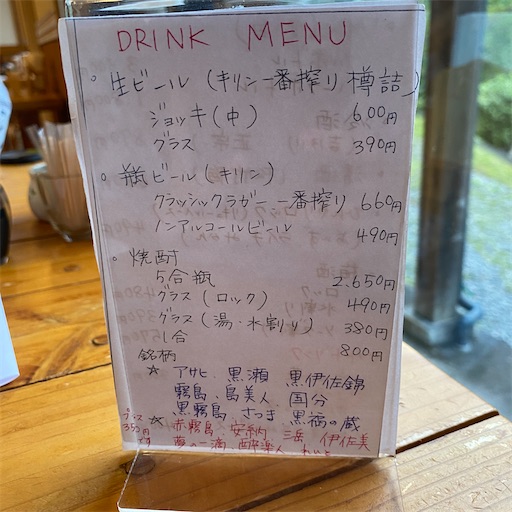 DRINK MENU
・生ビール (キリン一番搾り樽詰)
ジョッキ(中) 600円
グラス 390円
・瓶ビール (キリン)
クラッシックラガー 一番搾り 660円
ノンアルコールビール 490円
・焼酎
5合瓶 2.650円
グラス (ロック) 490円
グラス (湯・水割り) 380円
1合 800円
銘柄
☆ アサヒ. 黒瀬 黒伊佐錦
霧島. 島美人. 国分
黒霧島. さつま 黒福の蔵
プラス350円です ☆ 赤霧島. 安納 三岳 伊佐美
夢の一滴. 酔楽人